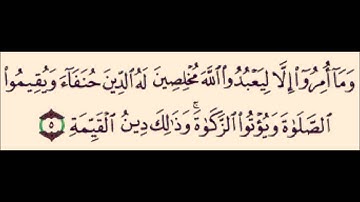 وَمَآ أُمِرُوٓا۟ إِلَّا لِيَعْبُدُوا۟ ٱللَّهَ مُخْلِصِينَ لَهُ ٱلدِّينَ حُنَفَآءَ وَيُقِيمُوا۟
ٱلصَّلَوٰةَ وَيُؤْتُوا۟ ٱلزَّكَوٰةَ ۚ وَذَٰلِكَ دِينُ ٱلْقَيِّمَةِ ٥